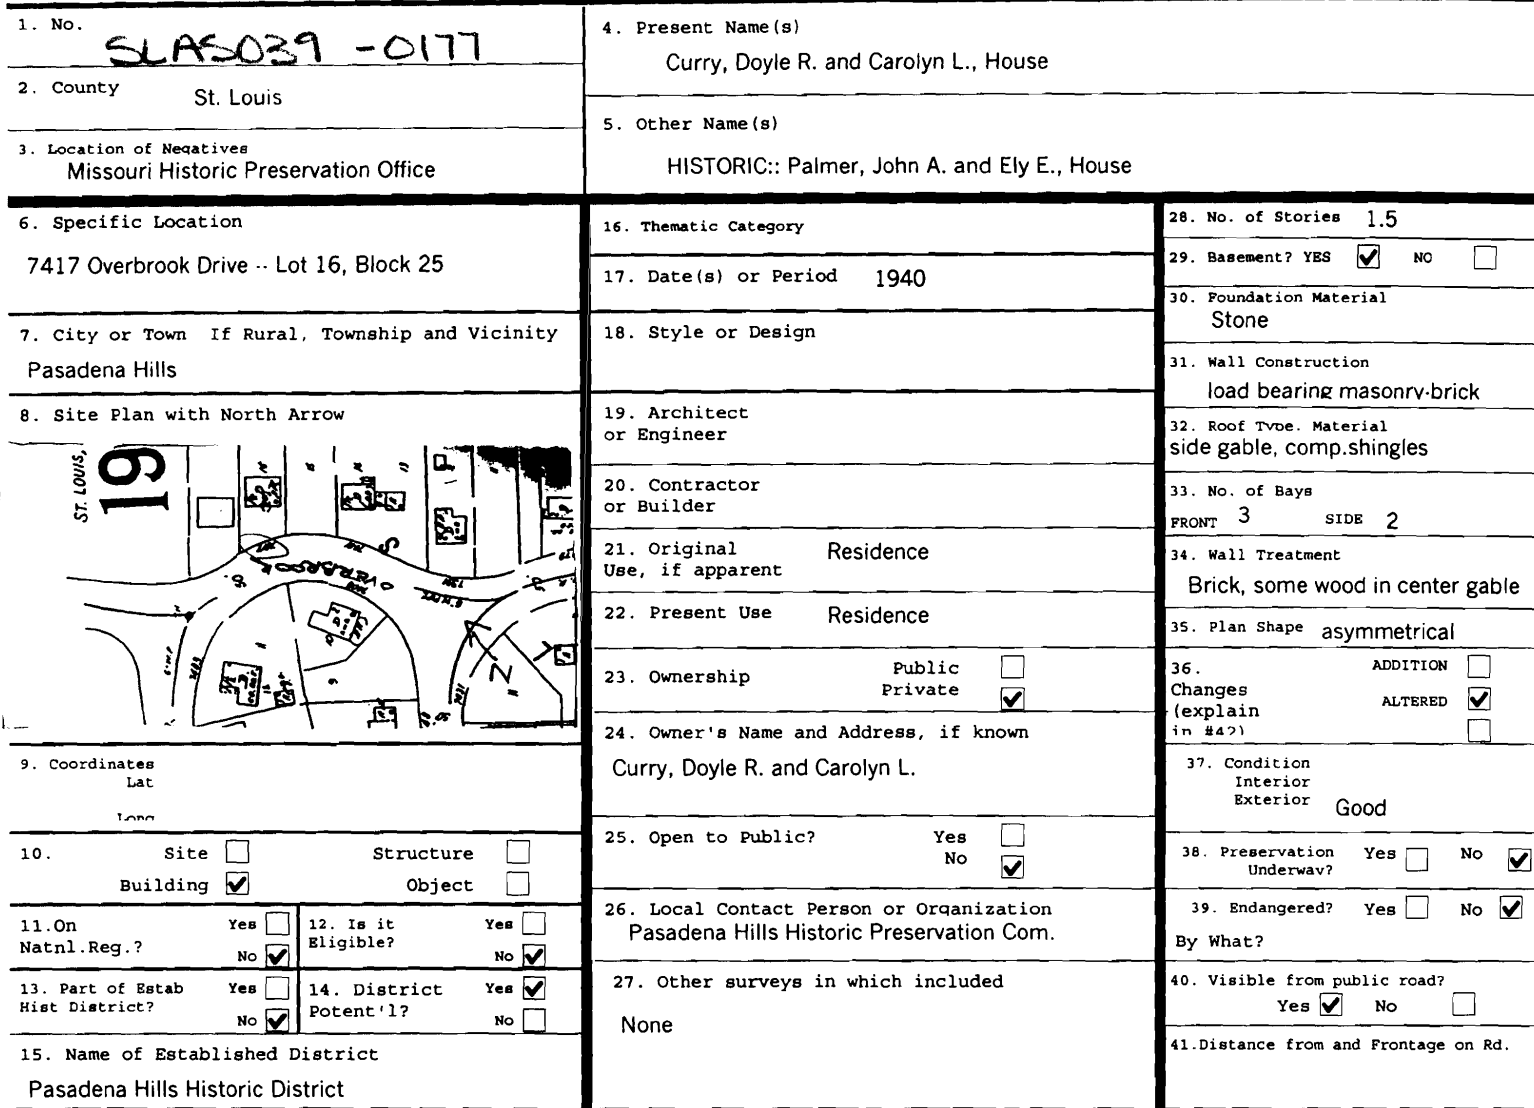 1. No.
SLAS039 -0177
2. County
St. Louis
3. Location of Negatives
Missouri Historic Preservation Office
4. Present Name(s)
Curry, Doyle R. and Carolyn L., House
5. Other Name(s)
HISTORIC:: Palmer, John A. and Ely E., House
6. Specific Location
7417 Overbrook Drive -- Lot 16, Block 25
7. City or Town If Rural, Township and Vicinity
Pasadena Hills
8. Site Plan with North Arrow
ST. LOUIS,
19
OVERBROOK
N
9. Coordinates
Lat
Long
10. Site Structure
Building Object
11.On Yes
Natnl.Reg.?
No
12. Is it Yes
Eligible?
No
13. Part of Estab Yes
Hist District?
No
14. District Yes
Potent'l?
No
15. Name of Established District
Pasadena Hills Historic District
16. Thematic Category
17. Date(s) or Period 1940
18. Style or Design
19. Architect
or Engineer
20. Contractor
or Builder
21. Original Residence
Use, if apparent
22. Present Use Residence
23. Ownership Public
Private
24. Owner's Name and Address, if known
Curry, Doyle R. and Carolyn L.
25. Open to Public? Yes
No
26. Local Contact Person or Organization
Pasadena Hills Historic Preservation Com.
27. Other surveys in which included
None
28. No. of Stories 1.5
29. Basement? YES NO
30. Foundation Material
Stone
31. Wall Construction
load bearing masonry-brick
32. Roof Type. Material
side gable, comp.shingles
33. No. of Bays
FRONT 3 SIDE 2
34. Wall Treatment
Brick, some wood in center gable
35. Plan Shape asymmetrical
36. ADDITION
Changes ALTERED
(explain
in #42)
37. Condition
Interior
Exterior Good
38. Preservation Yes No
Underway?
39. Endangered? Yes No
By What?
40. Visible from public road?
Yes No
41.Distance from and Frontage on Rd.